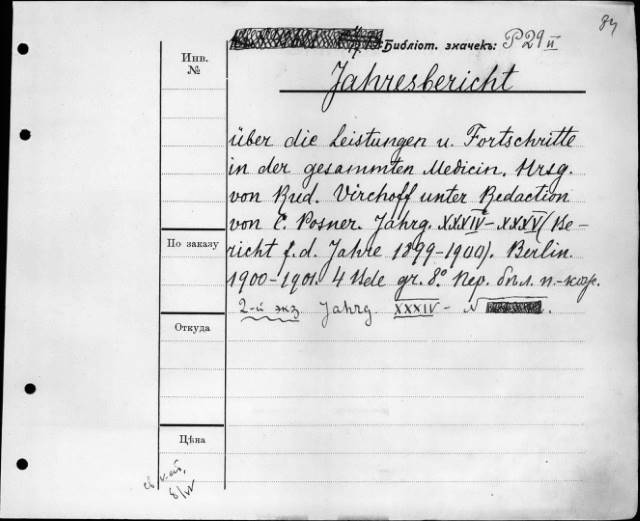 84
Библіот. значекъ: P29 II
Инв.
№
Jahresbericht
über die Leistungen u. Fortschritte
in der gesammten Medicin. Hrsg.
von Rud. Virchoff unter Redaction
von C. Posner. Jahrg. XXXIV–XXXV (Be-
richt f. d. Jahre 1899–1900). Berlin.
1900–1901. 4 Bde gr. 8° Пер. бѣл. п.-кож.
2-й экз. Jahrg. XXXIV –
По заказу
Откуда
Цѣна